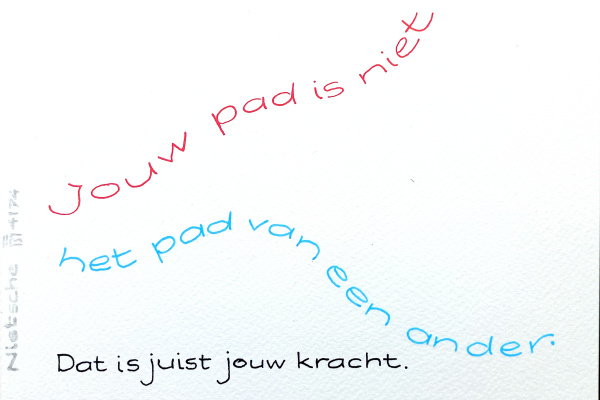 Jouw pad is niet
het pad van een ander.
Dat is juist jouw kracht.
Nietsche